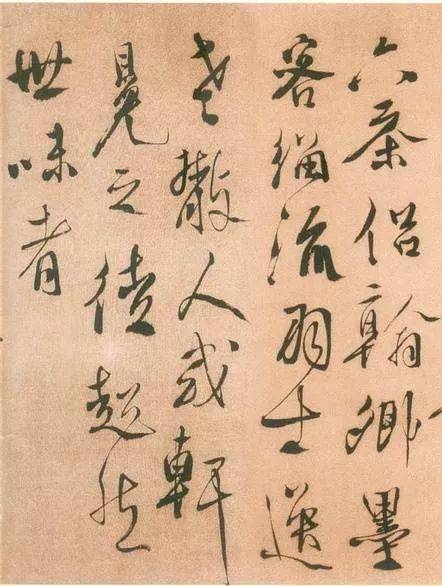 六茶侣翰卿墨
客緇流羽士逸
老散人或軒
冕之徒超然
世味者